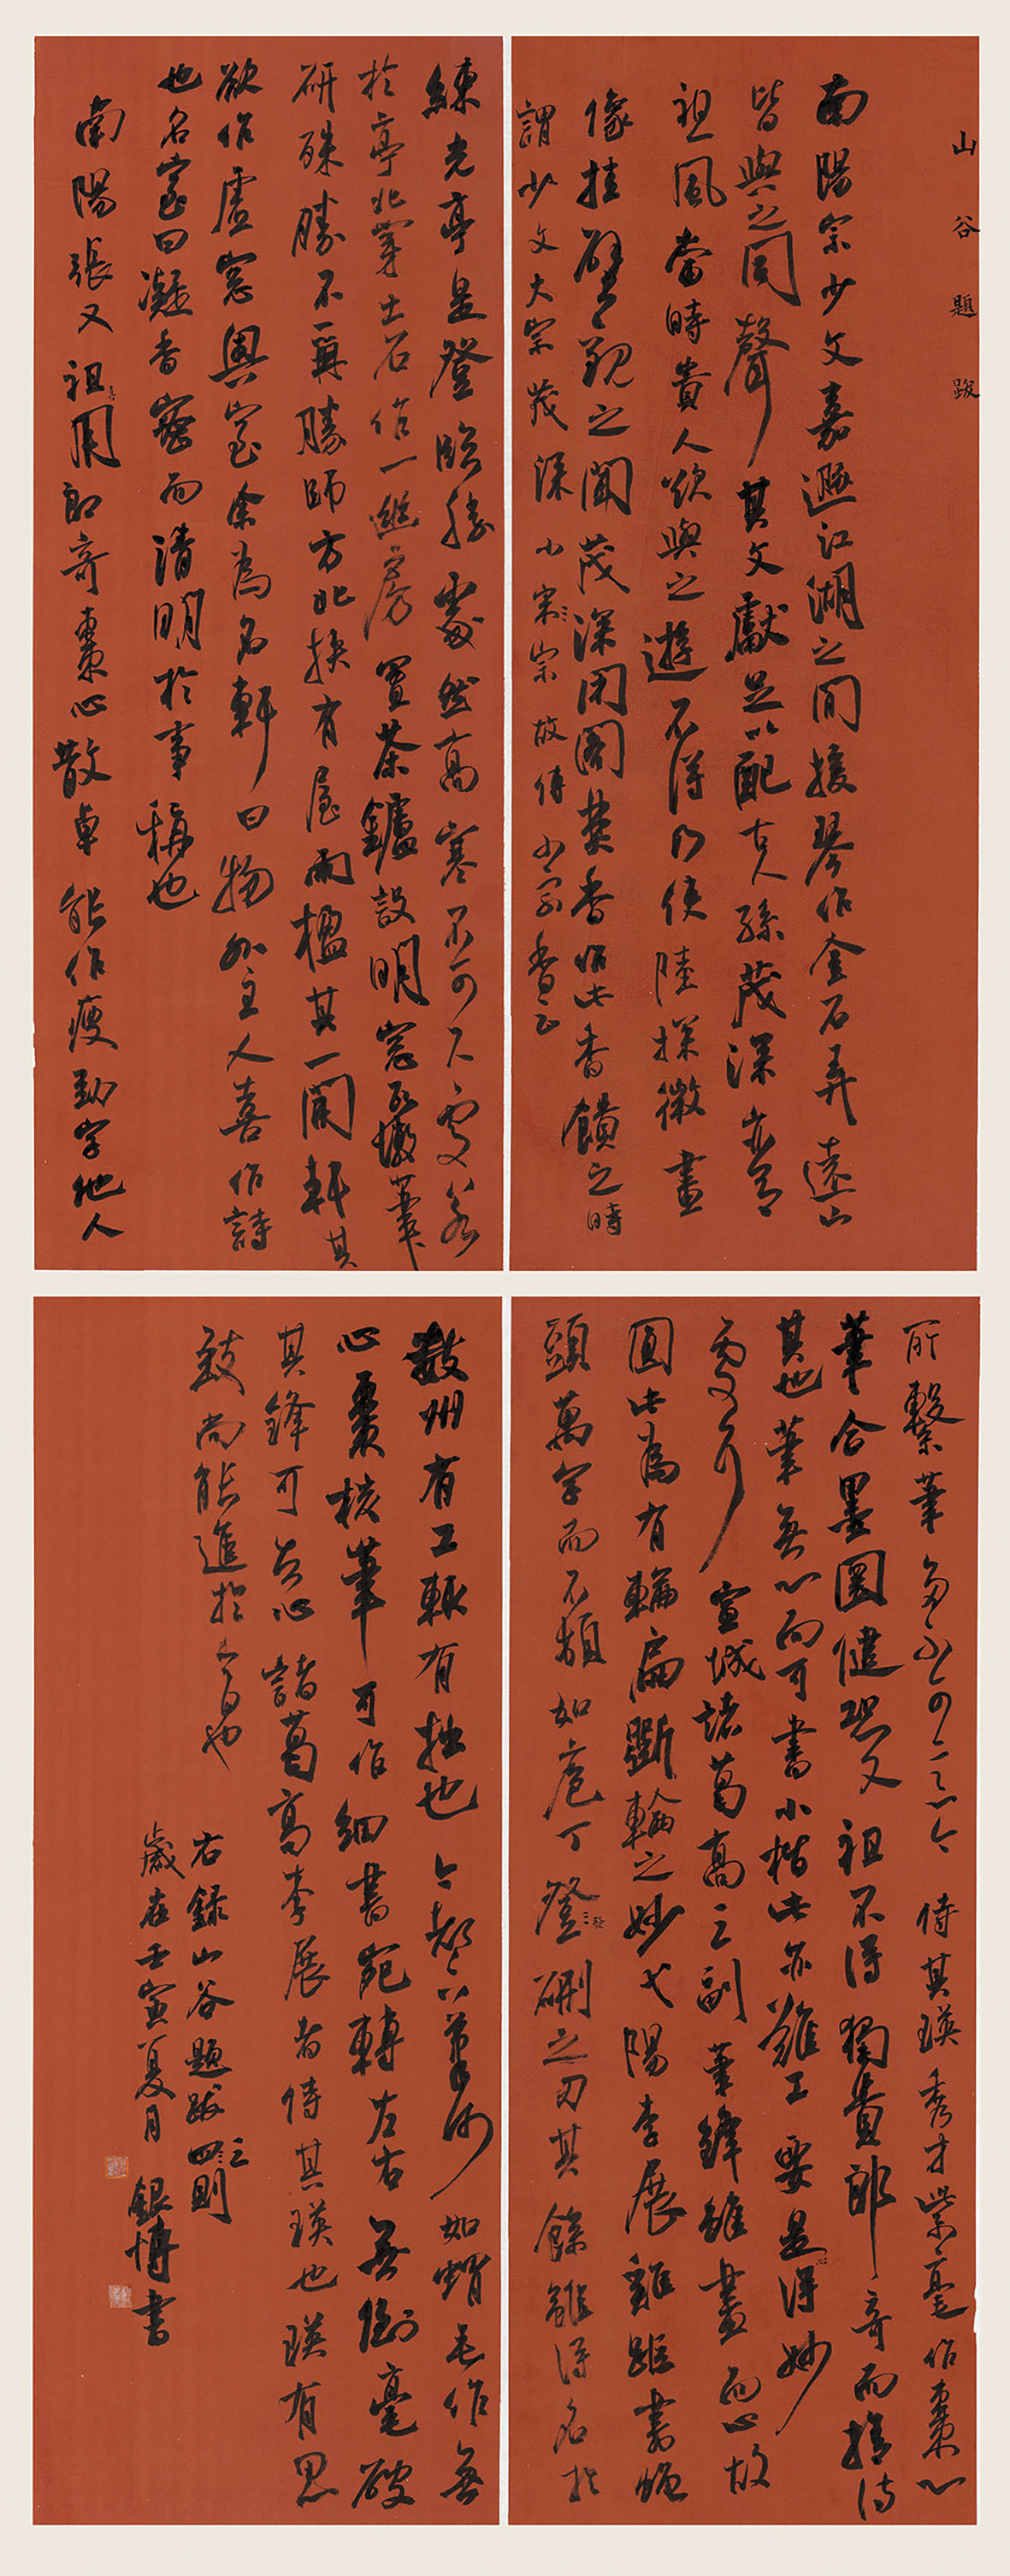 山谷題跋
南陽宗少文嘉遯江湖之間援琴作金石弄遠山
皆與之同聲其文獻足以配古人孫茂深亦有
祖風當時貴人欲與之遊不得乃使陸探微畫
像挂壁觀之聞茂深閉閣焚香作此香饋之時
謂少文大宗茂深小宗宗故傳小宗香云
練光亭是登臨勝處然高寒不可久處若
於亭北穿土石作一幽房置茶鑪設明窓瓦墩筆
研殊勝不爾勝師方北挾有屋兩楹其一開軒其
欲作虛窓奧室余為名軒曰物外主人喜作詩
也名室曰凝香密而清明於事稱也
南陽張乂祖喜用郎奇棗心散卓能作瘦勁字他人
所繫筆多不可意今侍其瑛秀才紫毫作棗心
筆含墨圓健恐乂祖不得獨貴郎奇而捨侍
其也筆無心而可書小楷此亦難工要是心得妙
處耳宣城諸葛高三副筆鋒雖盡而心故
圓此為有輪扁斲輪之妙弋陽李展雞距書蠅
頭萬字而不頓如庖丁發硎之刃其餘雖得名於
數州有工輒有拙也今都下筆師如蝟毛作無
心棗核筆可作細書宛轉左右無倒毫破
其鋒可告心諸葛高李展者侍其瑛也瑛有思
致尚能進於今日也
右錄山谷題跋四三則
歲在壬寅夏月銀博書